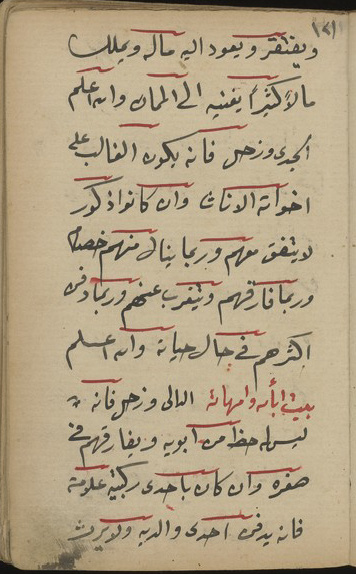 ١٢١
ويفتقر ويعود اليه ماله ويملك
مالا كثيرا يغنيه الى الممات والله اعلم
الجدى وزحل فانه يكون الغالب على
اخواته الاناث وان كانوا ذكور
لا يتفق معهم وربما ينال منهم خصما
وربما فارقهم ويتغرب عنهم وربما دفن
اكثرهم فى حال حياته والله اعلم
بيت ابائه وامهاته الدالى وزحل فانه
ليس له حظ من ابويه ويفارقهم فى
صغره وان كان باحدى ركبتيه علامة
فانه يدفن احدى والديه ولايرث